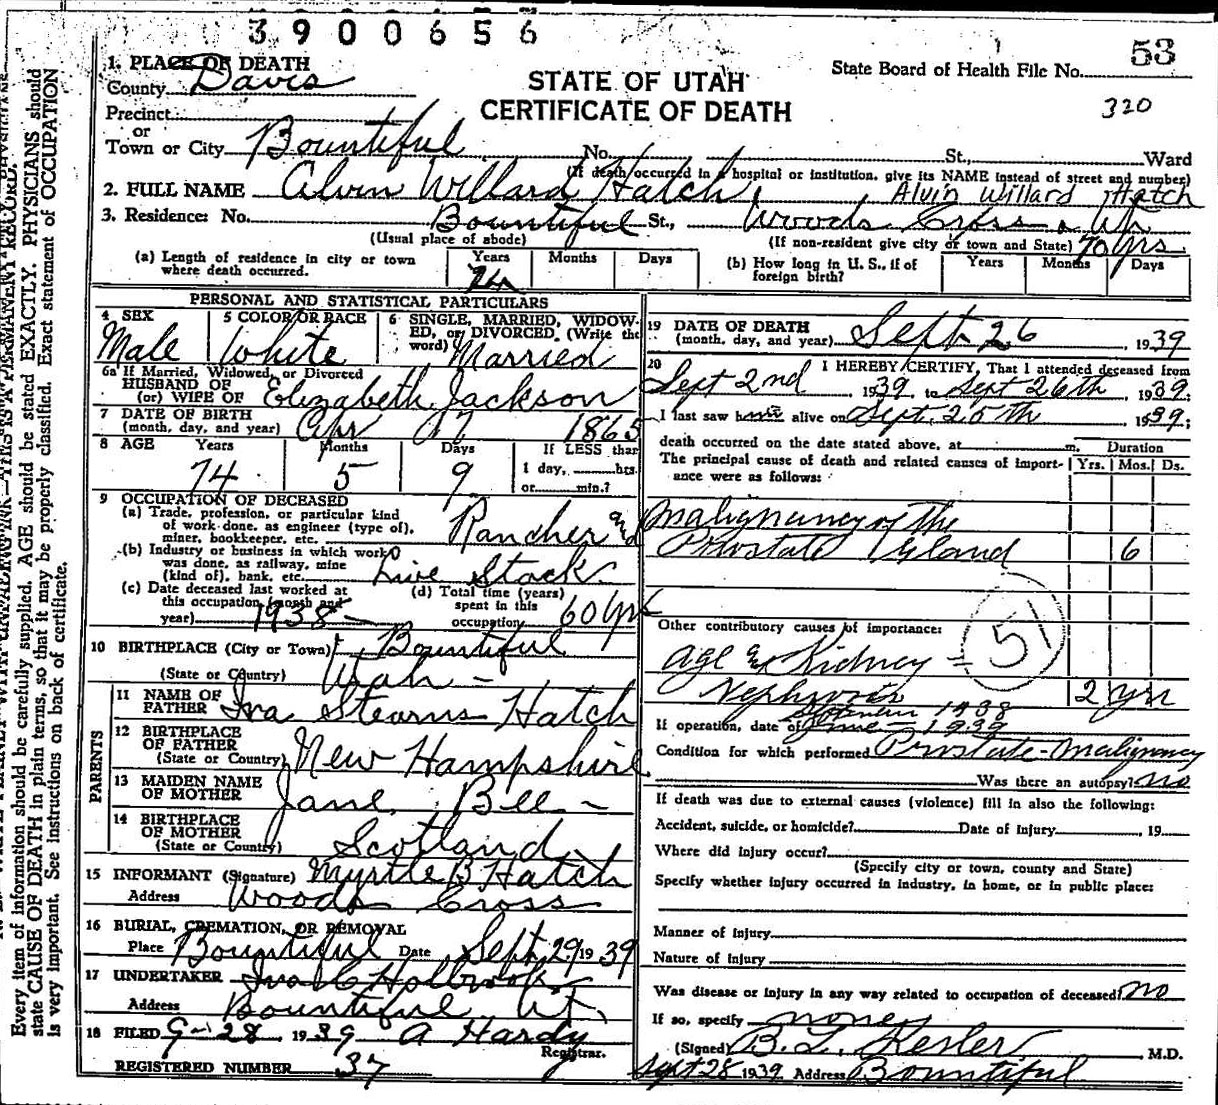 3900656
53
State Board of Health File No.
320
1. PLACE OF DEATH
STATE OF UTAH
County Davis
CERTIFICATE OF DEATH
Precinct
or
Town or City Bountiful No. St., Ward
(If death occurred in a hospital or institution, give its NAME instead of street and number)
2. FULL NAME Alvin Willard Hatch Alvin Willard Hatch
3. Residence: No. Bountiful St., Woods Cross Ut
(Usual place of abode) (If non-resident give city or town and State) 70 yrs
(a) Length of residence in city or town where death occurred. Years Months Days
74
(b) How long in U. S., if of foreign birth? Years Months Days
PERSONAL AND STATISTICAL PARTICULARS
4 SEX Male
5 COLOR OR RACE White
6 SINGLE, MARRIED, WIDOWED, or DIVORCED. (Write the word) Married
6a If Married, Widowed, or Divorced
HUSBAND OF
(or) WIFE OF Elizabeth Jackson
7 DATE OF BIRTH
(month, day, and year) Apr 17 1865
8 AGE Years Months Days If LESS than
74 5 9 1 day, hrs.
or min.?
9 OCCUPATION OF DECEASED
(a) Trade, profession, or particular kind
of work done, as engineer (type of),
miner, bookkeeper, etc. Rancher and
(b) Industry or business in which work
was done, as railway, mine
(kind of), bank, etc. Live Stock
(c) Date deceased last worked at
this occupation (month and
year) 1938
(d) Total time (years)
spent in this
occupation 60 yrs
10 BIRTHPLACE (City or Town) Bountiful
(State or Country) Utah
PARENTS
11 NAME OF
FATHER Ira Stearns Hatch
12 BIRTHPLACE
OF FATHER
(State or Country) New Hampshire
13 MAIDEN NAME
OF MOTHER Jane Bee
14 BIRTHPLACE
OF MOTHER
(State or Country) Scotland
15 INFORMANT (Signature) Myrtle B Hatch
Address Woods Cross
16 BURIAL, CREMATION, OR REMOVAL
Place Bountiful Date Sept. 29 1939
17 UNDERTAKER Ira C Holbrook
Address Bountiful Ut.
18 FILED 9-28 1939 A Hardy
Registrar.
REGISTERED NUMBER 37
19 DATE OF DEATH
(month, day, and year) Sept. 26, 1939
20 I HEREBY CERTIFY, That I attended deceased from
Sept 2nd, 1939, to Sept 26th, 1939;
I last saw him alive on Sept. 25th, 1939;
death occurred on the date stated above, at m. Duration
The principal cause of death and related causes of importance were as follows: Yrs. Mos. Ds.
Malignancy of the
Prostate Gland 6
Other contributory causes of importance:
51
Age and Kidney
2 yrs
If operation, date of 1938
June 1939
Condition for which performed Prostate-Malignancy
Was there an autopsy? no
If death was due to external causes (violence) fill in also the following:
Accident, suicide, or homicide? Date of injury , 19
Where did injury occur?
(Specify city or town, county and State)
Specify whether injury occurred in industry, in home, or in public place:
Manner of injury
Nature of injury
Was disease or injury in any way related to occupation of deceased? no
If so, specify none
(Signed) B. L. Kesler, M.D.
Sept 28 1939 Address Bountiful
Every item of information should be carefully supplied. AGE should be stated EXACTLY. PHYSICIANS should
state CAUSE OF DEATH in plain terms, so that it may be properly classified. Exact statement of OCCUPATION
is very important. See instructions on back of certificate.